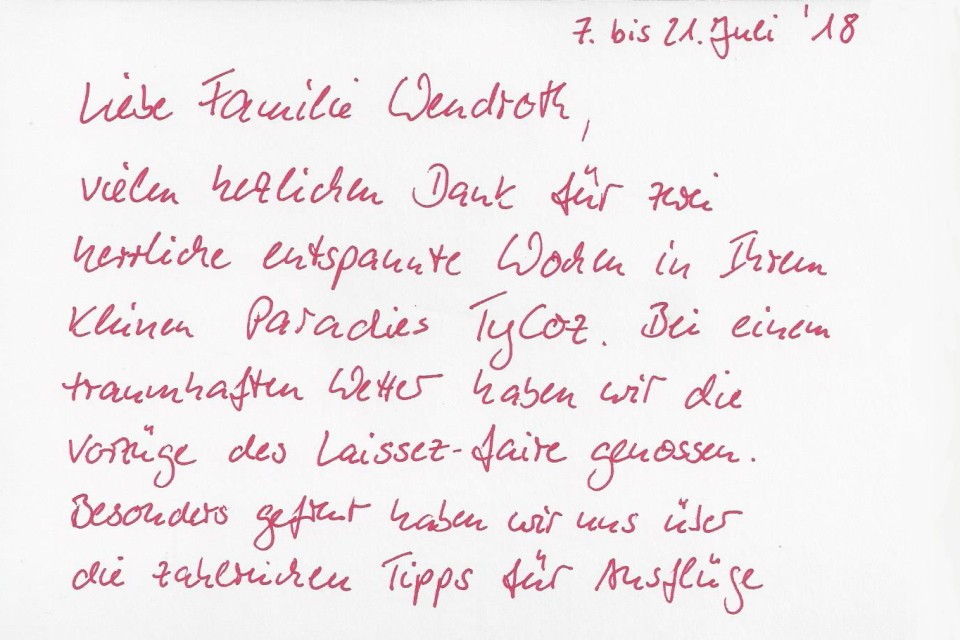 7. bis 21. Juli '18
Liebe Familie Wendroth,
vielen herzlichen Dank für zwei
herrliche entspannte Wochen in Ihrem
kleinen Paradies TyCoz. Bei einem
traumhaften Wetter haben wir die
Vorzüge des Laissez-faire genossen.
Besonders gefreut haben wir uns über
die zahlreichen Tipps für Ausflüge